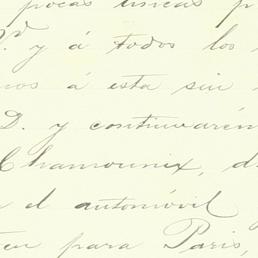 pocas únicas p
P.d y á todos los
nos á esta sin
D. y continuarén
Chamounix, d
n el automóvil
ten para Paris,